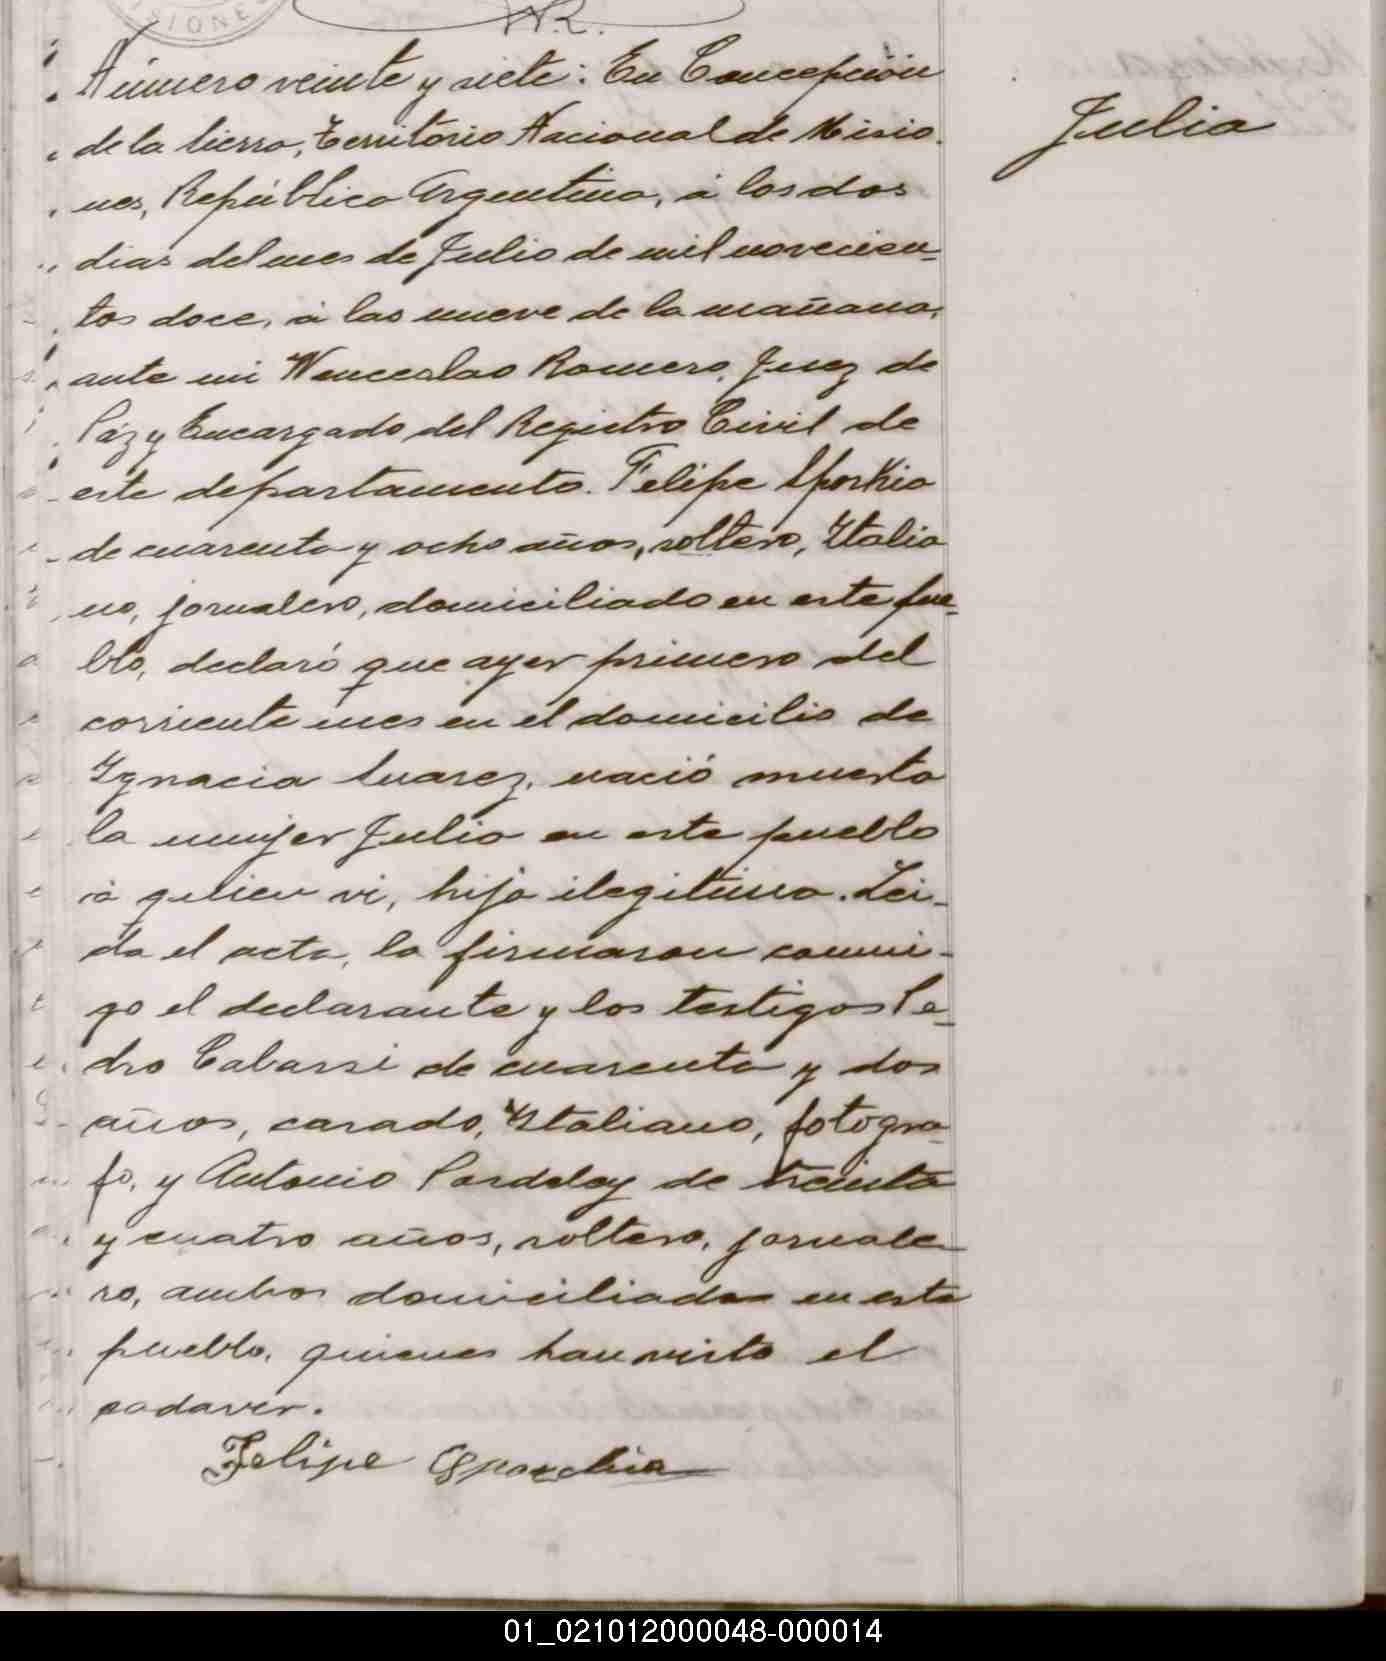 SIONES
W.R.
Número veinte y siete: En Concepción
de la sierra, Territorio Nacional de Misio-
nes, República Argentina, á los dos
dias del mes de Julio de mil novecien-
tos doce, á las nueve de la mañana,
ante mi Wenceslao Romero, Juez de
Páz y Encargado del Registro Civil de
este departamento. Felipe Sporkia
de cuarenta y ocho años, soltero, Italia
no, jornalero, domiciliado en este pue-
blo, declaró que ayer primero del
corriente mes en el domicilio de
Ygnacia Suarez, nació muerta
la mujer Julia en este pueblo
á quien vi, hija ilegitima. Lei-
da el acta, la firmaron conmi-
go el declarante y los testigos Pe-
dro Cabassi de cuarenta y dos
años, casado, Italiano, fotogra-
fo, y Antonio de treinta
y cuatro años, soltero, jornale
ro, ambos domiciliados en este
pueblo, quienes han visto el
cadaver.
Felipe
Julia
01_021012000048-000014